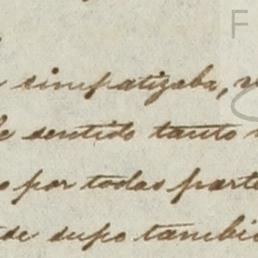 simpatizaba,
sentido tanto
por todas parte
de supo tambi